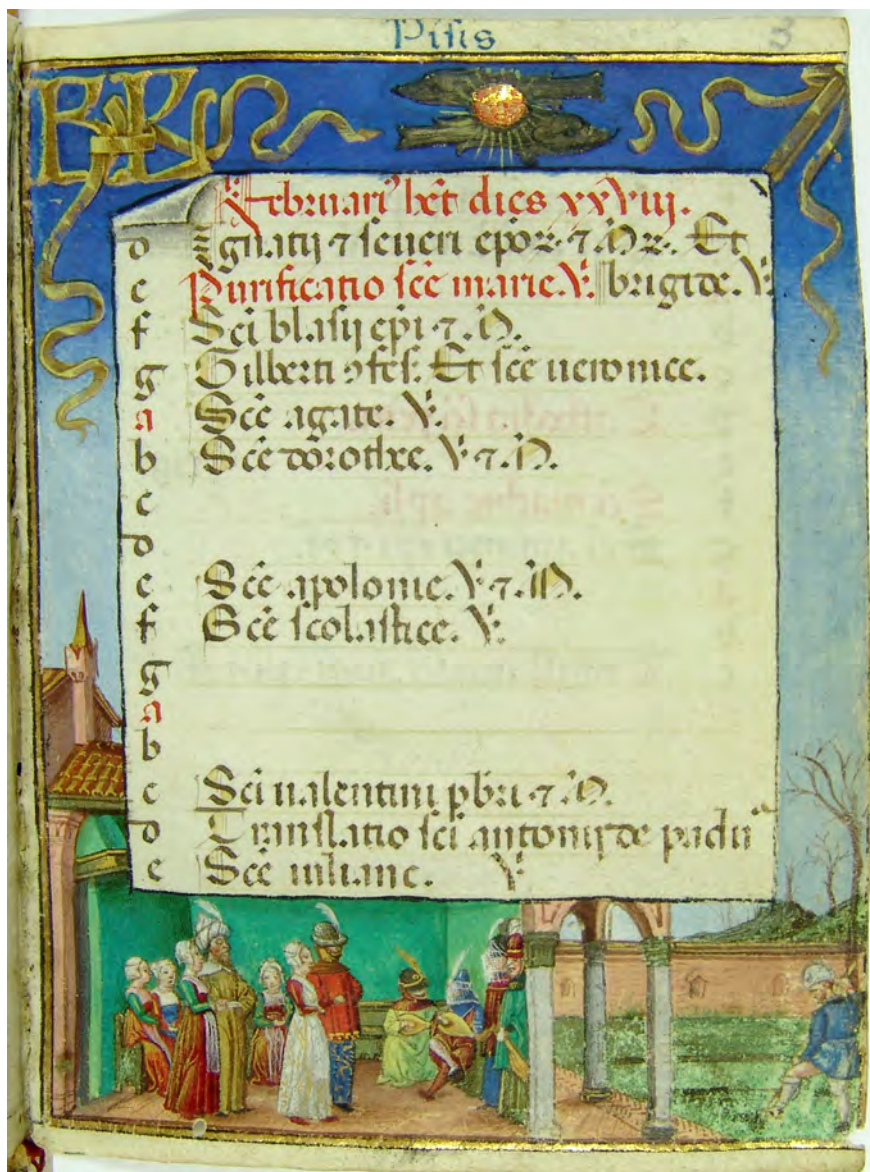 Pisis
3
Februari' h̄et dies xxViij.
d Ignatij ⁊ seueri ep̄oꝝ. ⁊ M ꝝ. Et
e Purificatio sc̄e marie. V. brigide. V
f Sc̄i blasij ep̄i ⁊. M.
g Gilberti ꝯfes. Et sc̄e ueronice.
a Sc̄e agate. V.
b Sc̄e dorothee. V ⁊. M.
c
d
e Sc̄e apolonie. V ⁊. M.
f Sc̄e scolastice. V.
g
a
b
c Sc̄i ualentini pb̄ri ⁊. M.
d Translatio sc̄i antonij de padua
e Sc̄e iuliane. V